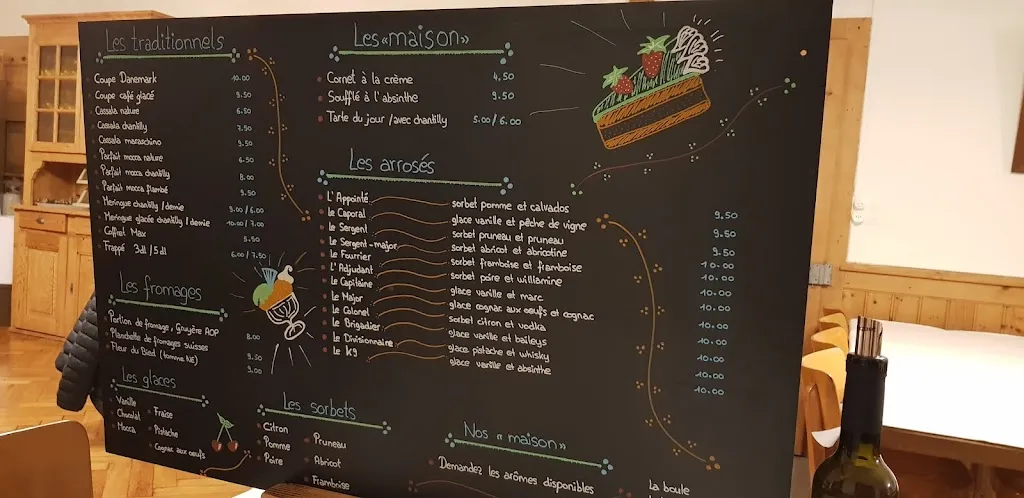 Les traditionnels
Coupe Danemark 10.00
Coupe café glacé 9.50
Cassata nature 6.50
Cassata chantilly 7.50
Cassata maraschino 9.50
Parfait mocca nature 6.50
Parfait mocca chantilly 8.00
Parfait mocca flambé 9.50
Meringue chantilly / demie 9.00 / 6.00
Meringue glacée chantilly / demie 10.00 / 7.00
Coffret Max 5.50
Frappé 3dl / 5dl 6.00 / 7.50
Les fromages
Portion de fromage, Gruyère AOP 8.00
Planchette de fromages suisses 9.50
Fleur du Bied (tomme NE) 9.00
Les glaces
Vanille
Chocolat
Mocca
Fraise
Pistache
Cognac aux oeufs
Les «maison»
Cornet à la crème 4.50
Soufflé à l'absinthe 9.50
Tarte du jour / avec chantilly 5.00 / 6.00
Les arrosés
L'Appointé sorbet pomme et calvados 9.50
Le Caporal glace vanille et pêche de vigne 9.50
Le Sergent sorbet pruneau et pruneau 9.50
Le Sergent-major sorbet abricot et abricotine 10.00
Le Fourrier sorbet framboise et framboise 10.00
L'Adjudant sorbet poire et williamine 10.00
Le Capitaine glace vanille et marc 10.00
Le Major glace cognac aux oeufs et cognac 10.00
Le Colonel sorbet citron et vodka 10.00
Le Brigadier glace vanille et baileys 10.00
Le Divisionnaire glace pistache et whisky 10.00
Le K9 glace vanille et absinthe 10.00
Les sorbets
Citron
Pomme
Poire
Pruneau
Abricot
Framboise
Nos «maison»
Demandez les arômes disponibles
La boule